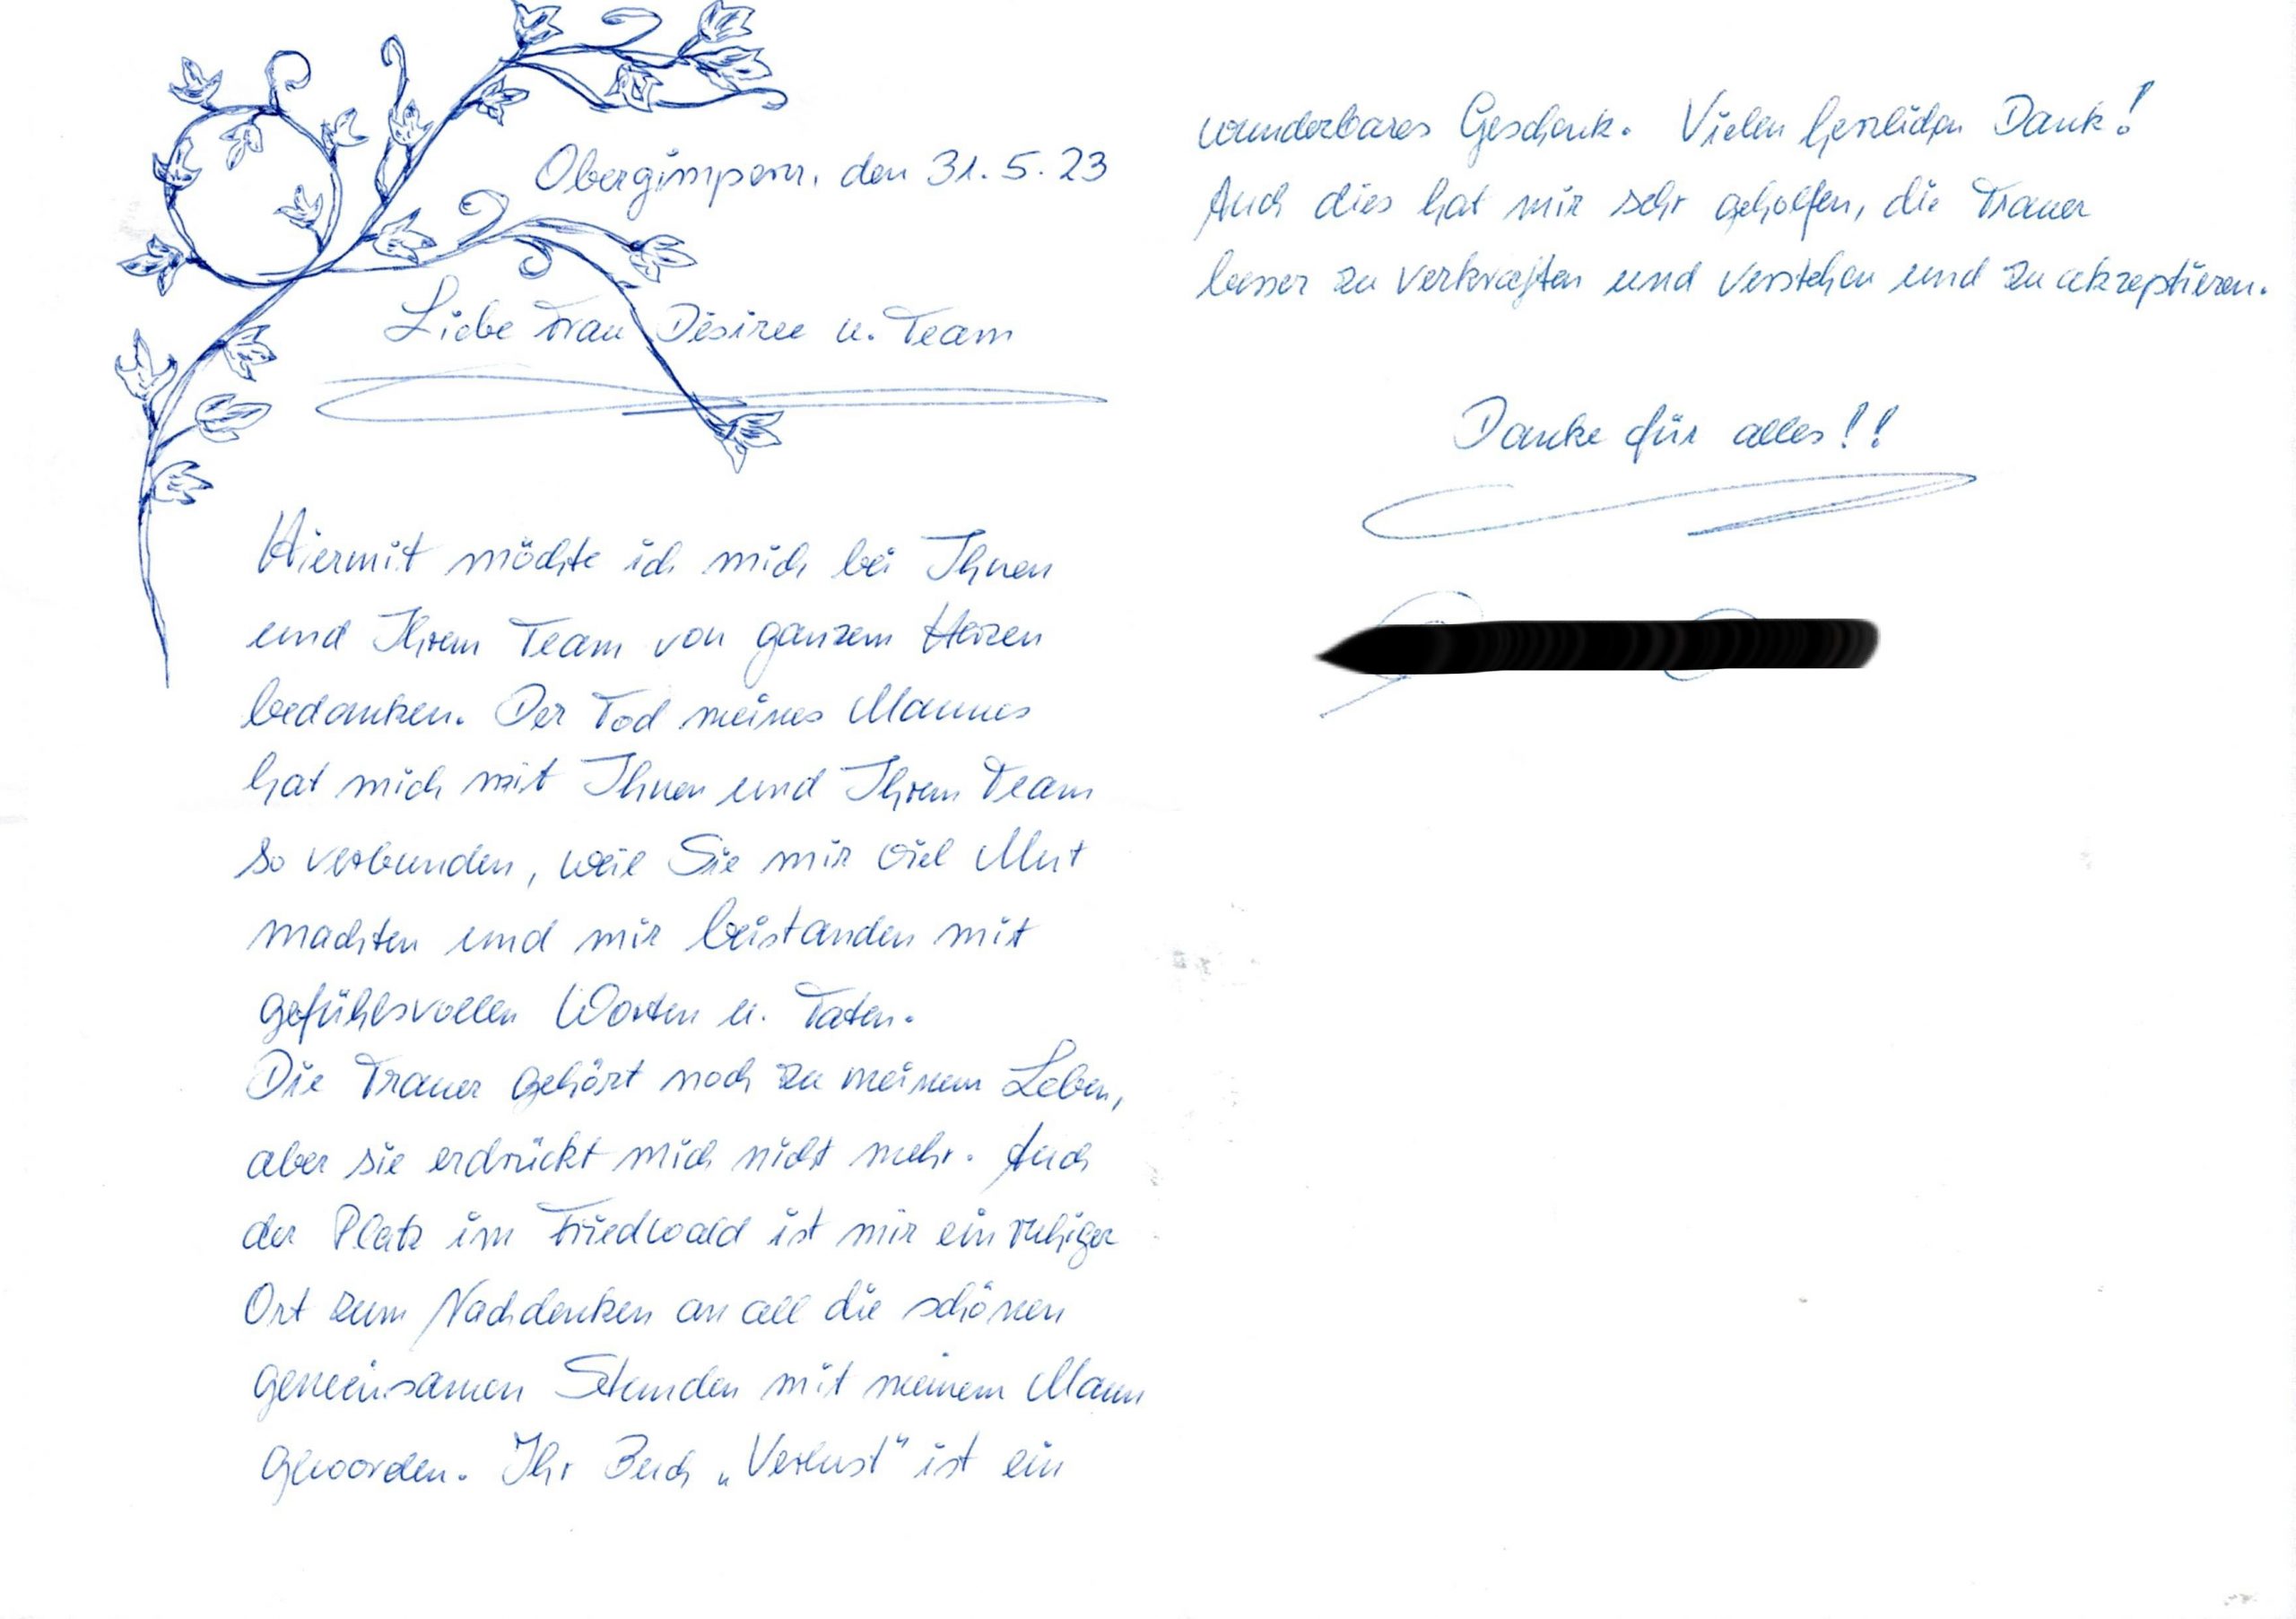 Obergimpern, den 31.5.23
Liebe Frau Désiree u. Team
Hiermit möchte ich mich bei Ihnen
und Ihrem Team von ganzem Herzen
bedanken. Der Tod meines Mannes
hat mich mit Ihnen und Ihrem Team
so verbunden, weil Sie mir viel Mut
machten und mir beistanden mit
gefühlsvollen Worten u. Taten.
Die Trauer gehört noch zu meinem Leben,
aber sie erdrückt mich nicht mehr. Auch
der Platz im Friedwald ist mir ein ruhiger
Ort zum Nachdenken an all die schönen
gemeinsamen Stunden mit meinem Mann
geworden. Ihr Buch „Verlust" ist ein
wunderbares Geschenk. Vielen herzlichen Dank!
Auch dies hat mir sehr geholfen, die Trauer
besser zu verkraften und verstehen und zu akzeptieren.
Danke für alles!!